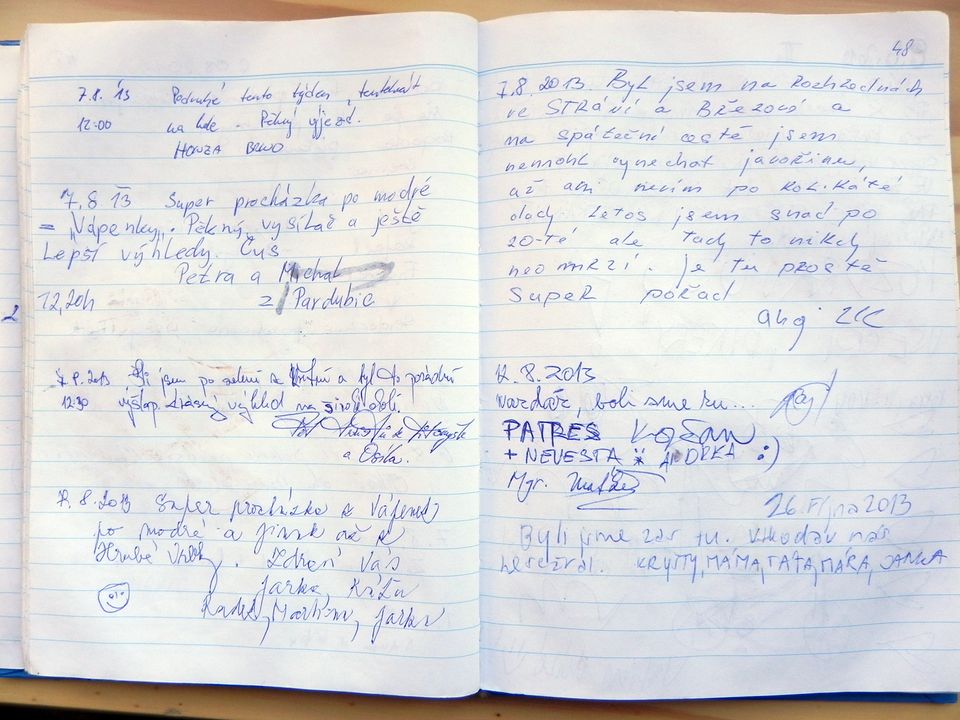 7.8. 13 Podruhé tento týden, tentokrát
12.00 na kole. Pěkný výjezd.
HONZA BRNO
7,8 13 Super procházka po modré
= „Vápenky". Pěkný vysílač a ještě
Lepší výhledy. Čus
Petra a Michal
12,20h z Pardubic
7.8.2013 jsem po zelené a byl to pořádný
12:30 výšlap. Krásný výhled na široké okolí.
a
7. 8. 2013 Super procházka z Vápenek
po modré a jinak až k
Hrubé Vrbky. Zdraví Vás
Jarka, Káťa
Radek, Martina, Jarka
2
48
7.8. 2013. Byl jsem na Rozhlednách
ve STRÁNÍ a BŘEZOVÉ a
na spáteční cestě jsem
nemohl vynechat javořinu,
až ani nevím po kolikáté
tady letos jsem snad po
20-té ale tady to nikdy
neomrzí. je tu prostě
super pořád
ahoj
12.8.2013
nazdár, boli sme tu...
PATRES
+ NEVESTA
:)
Mgr.
26. října 2013
Byli jsme zas tu. Vlkodav nás
nesežral. KRYTTY, MÁMA, TÁTA, MÁRA, JANKA